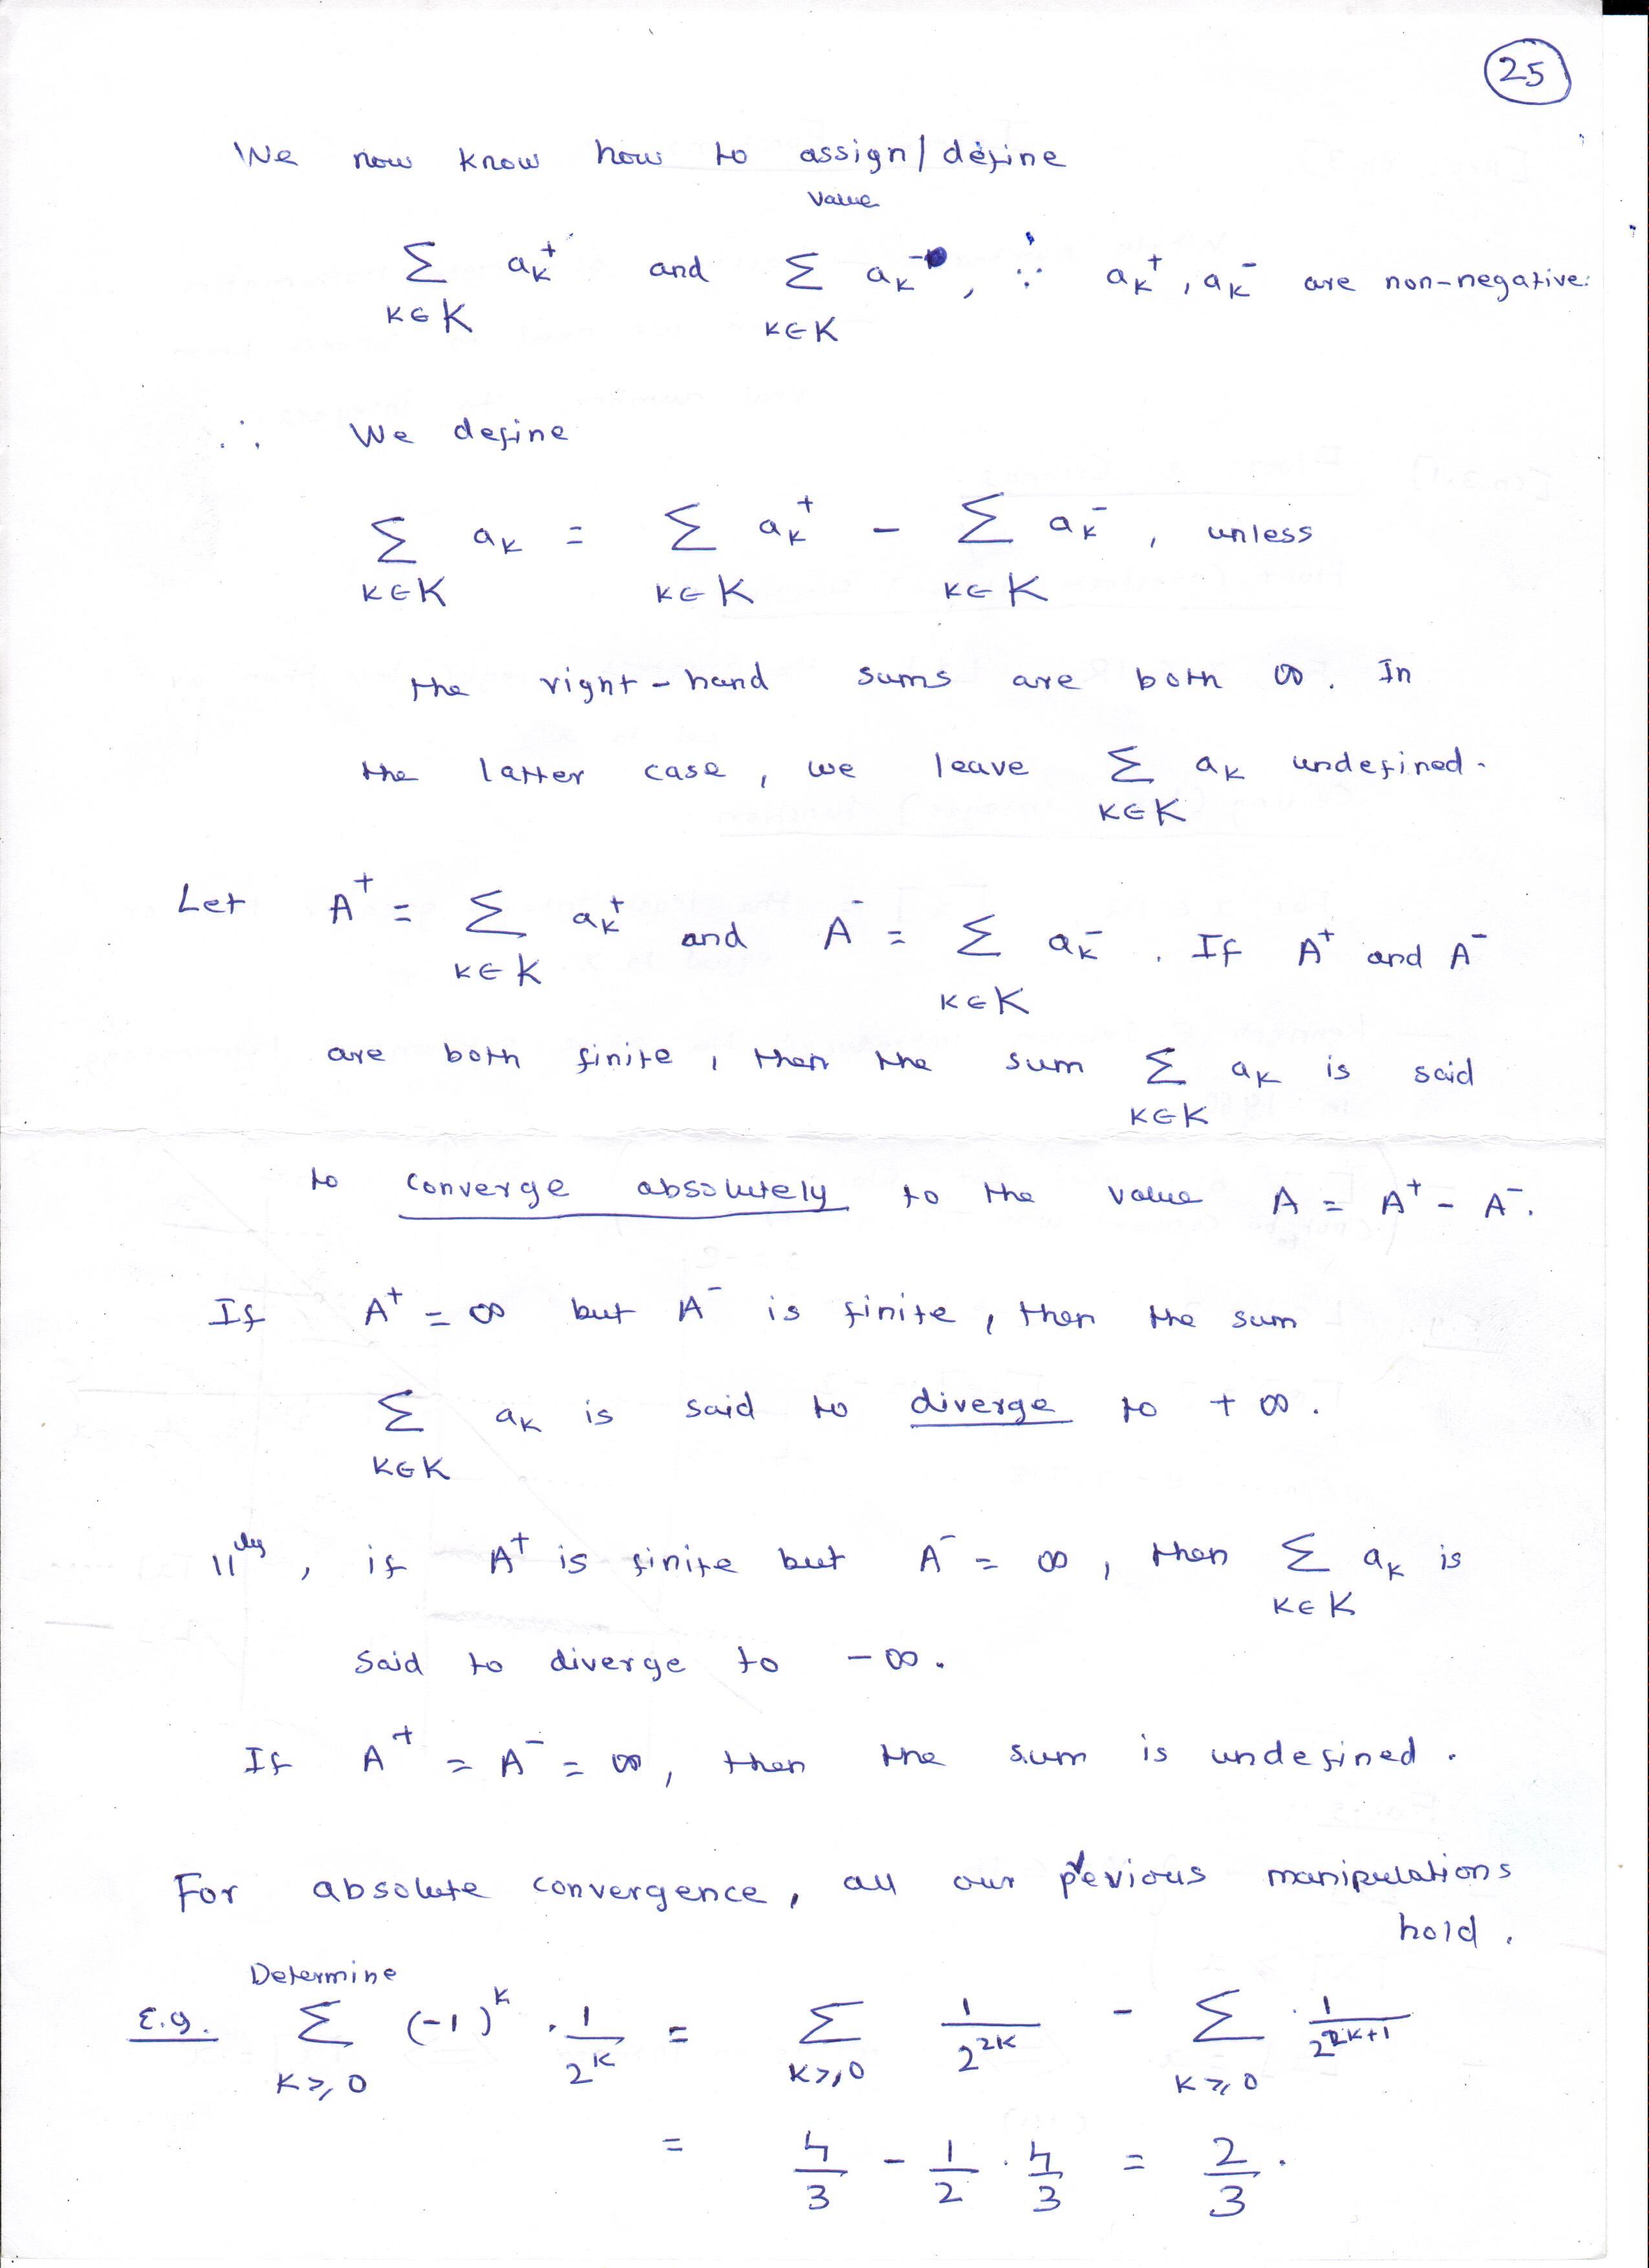 25
We now know how to assign/define
value
∑ aₖ⁺ and ∑ aₖ⁻, ∵ aₖ⁺, aₖ⁻ are non-negative.
k∈K k∈K
∴ We define
∑ aₖ = ∑ aₖ⁺ - ∑ aₖ⁻, unless
k∈K k∈K k∈K
the right-hand sums are both ∞. In
the latter case, we leave ∑ aₖ undefined.
k∈K
Let A⁺ = ∑ aₖ⁺ and A⁻ = ∑ aₖ⁻. If A⁺ and A⁻
k∈K k∈K
are both finite, then the sum ∑ aₖ is said
k∈K
to converge absolutely to the value A = A⁺ - A⁻.
If A⁺ = ∞ but A⁻ is finite, then the sum
∑ aₖ is said to diverge to +∞.
k∈K
||ˡʸ, if A⁺ is finite but A⁻ = ∞, then ∑ aₖ is
k∈K
said to diverge to -∞.
If A⁺ = A⁻ = ∞, then the sum is undefined.
For absolute convergence, all our previous manipulations
hold.
Determine
E.g. ∑ (-1)^k · 1/2^k = ∑ 1/2^{2k} - ∑ 1/2^{2k+1}
k≥0 k≥0 k≥0
= 4/3 - 1/2 · 4/3 = 2/3.